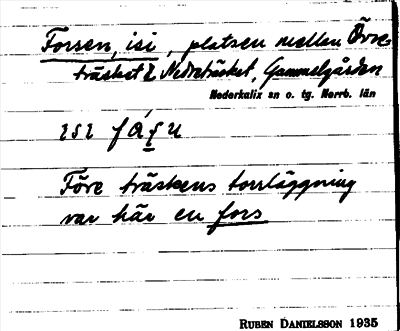 Forsen, isi, platsen mellan Övre
träsket & Nedreträsket, Gammelgården
Nederkalix sn o. tg. Norrb. län
ɪsɪ fáʂu
Före träskens torrläggning
var här en fors
RUBEN DANIELSSON 1935